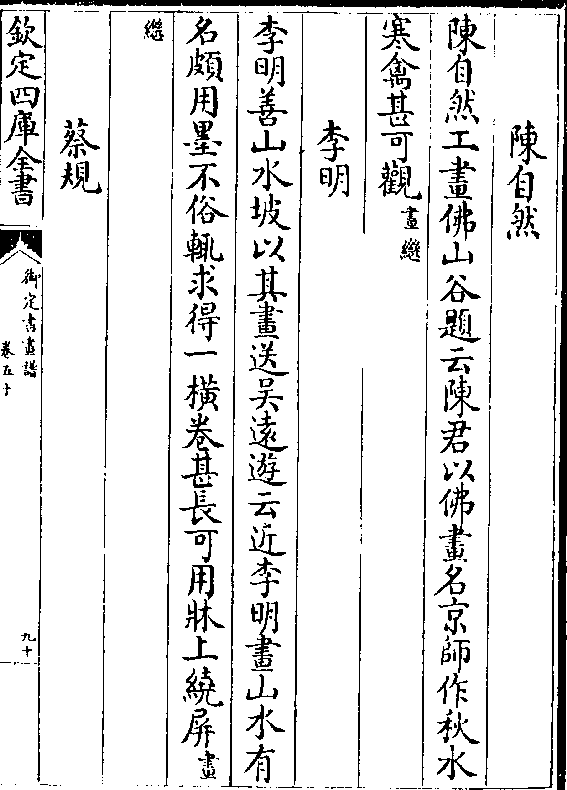 陳自然
陳自然工畫佛山谷題云陳君以佛畫名京師作秋水
寒禽甚可觀畫繼
李明
李明善山水坡以其畫送吴遠遊云近李明畫山水有
名頗用墨不俗輙求得一橫卷甚長可用牀上繞屏畫
繼
蔡規
欽定四庫全書
御定書畫譜
卷五十
九十